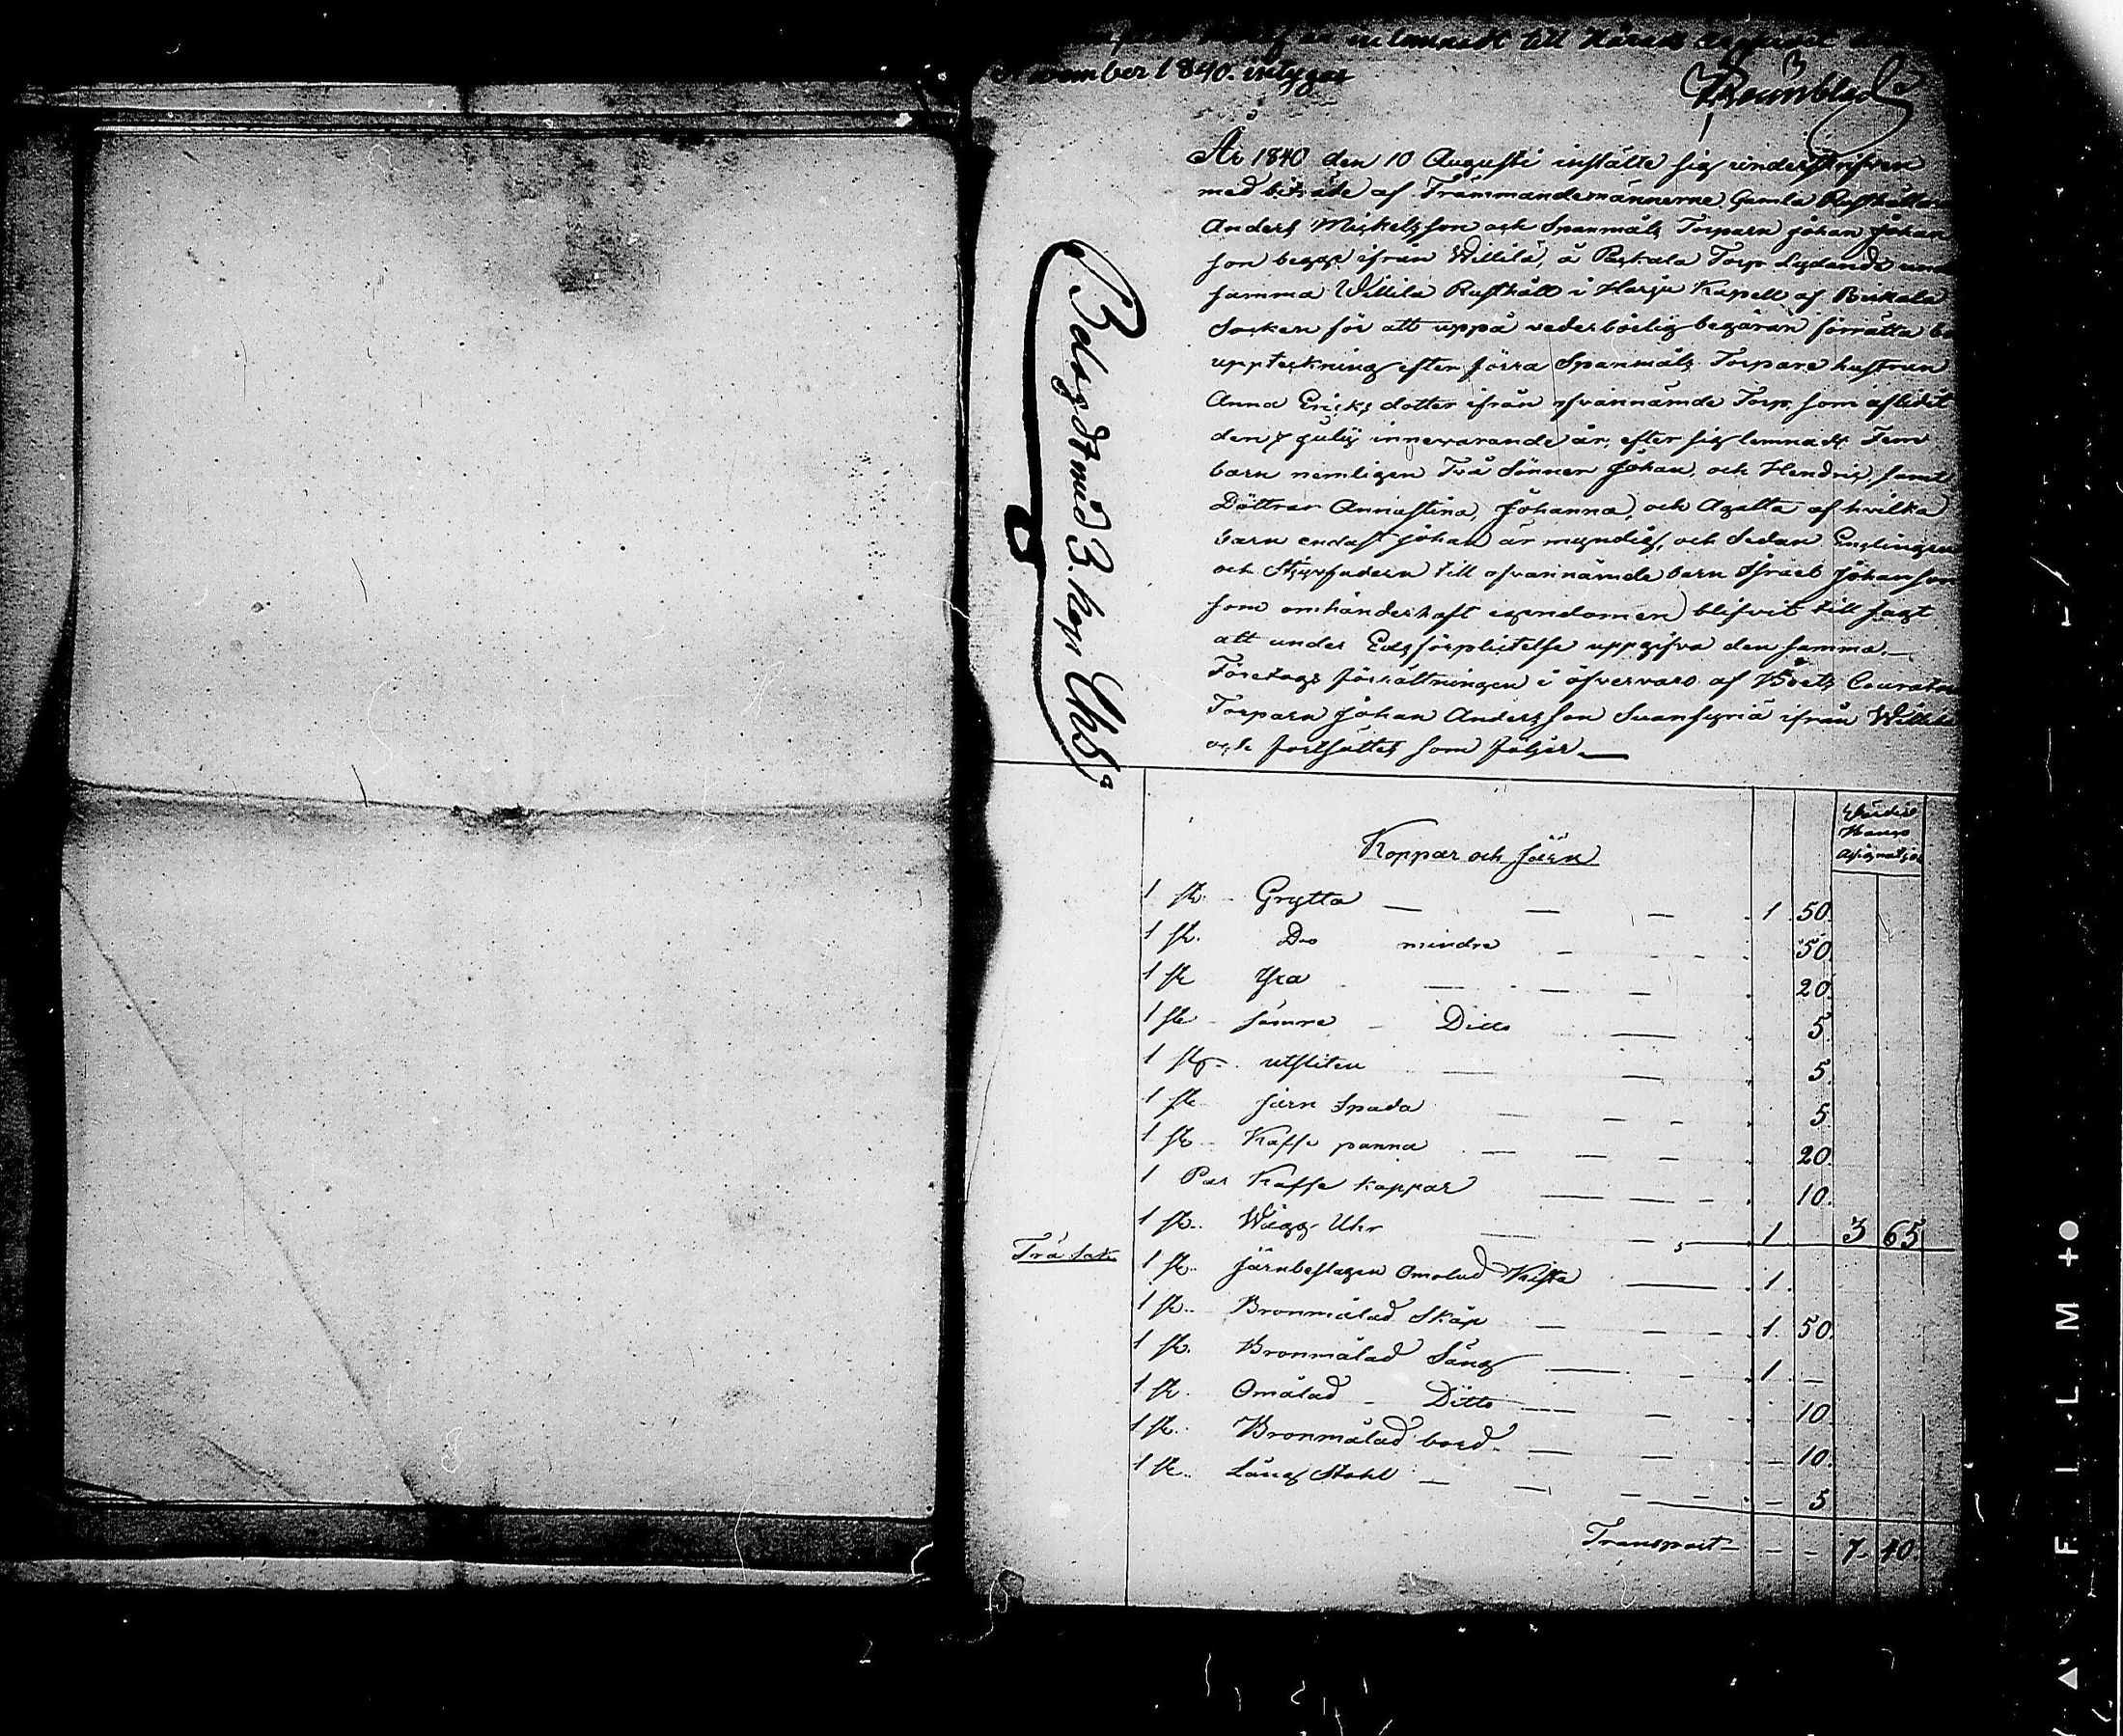 till Härads
November 1840. intygar
År 1840 den 10 Augusti instälte sig underskrifven
med biträde af Främmandemännerne Gamla Rusthållarn
Anders Mickelsson och Spanmåls Torparn Johan Johan
son begge ifrån Willilä, å Paskala Torp Lydande und
samma Willilä Rusthåll i Harju Kapell af Birkala
Socken för att uppå vederbörlig begäran förrätta bo
uppteckning efter förra Spanmåls Torpare hustrun
Anna Ericks dotter ifrån ofvannämde Torp, som aflidit
den 7 Julij innevarande år, efter sig lemnadt Fem
barn nemligen Två Sönner Johan, och Hendric, samt
Döttrar Annastina, Johanna, och Agatta af hvilka
barn endast Johan är myndig, och Sedan Englingen
och Stjuvfadern till ofvannämde barn Israel Johansson
som omhänderhaft egendomen blifvit tillsagt
att under Edsförplictelse uppgifva den samma.—
Företogs förrättningen i öfvervaro af Curator
Torparn Johan Andersson ifrån Willilä
och fortsattes som följer—
Belagdt med 3. kop Chb:a
Wärdet
Banco
Assignatjon
Koppar och Järn
1 st. Grytta — — — 1 50.
1 st. Do mindre — 50.
1 st Yxa — — — 20.
1 st sämre Ditto — 5.
1 st. utsliten — — 5.
1 st järn Spada — — 5.
1 st Kaffe panna — — — 20.
1 Par Kaffe koppar — — 10.
1 st. Wägg Uhr — 1 3 65
Trä Sak
1 st. järnbeslagen Omolad Kista — 1.
1 st. Bronmålad Skåp — — 1. 50.
1 st. Bronmålad Säng — 1 —
1 st. Omålad Ditto — — 10
1 st. Bronmålad bord. — — 10.
1 st. Lång Stohl — — 5
Transport — — 7. 40.